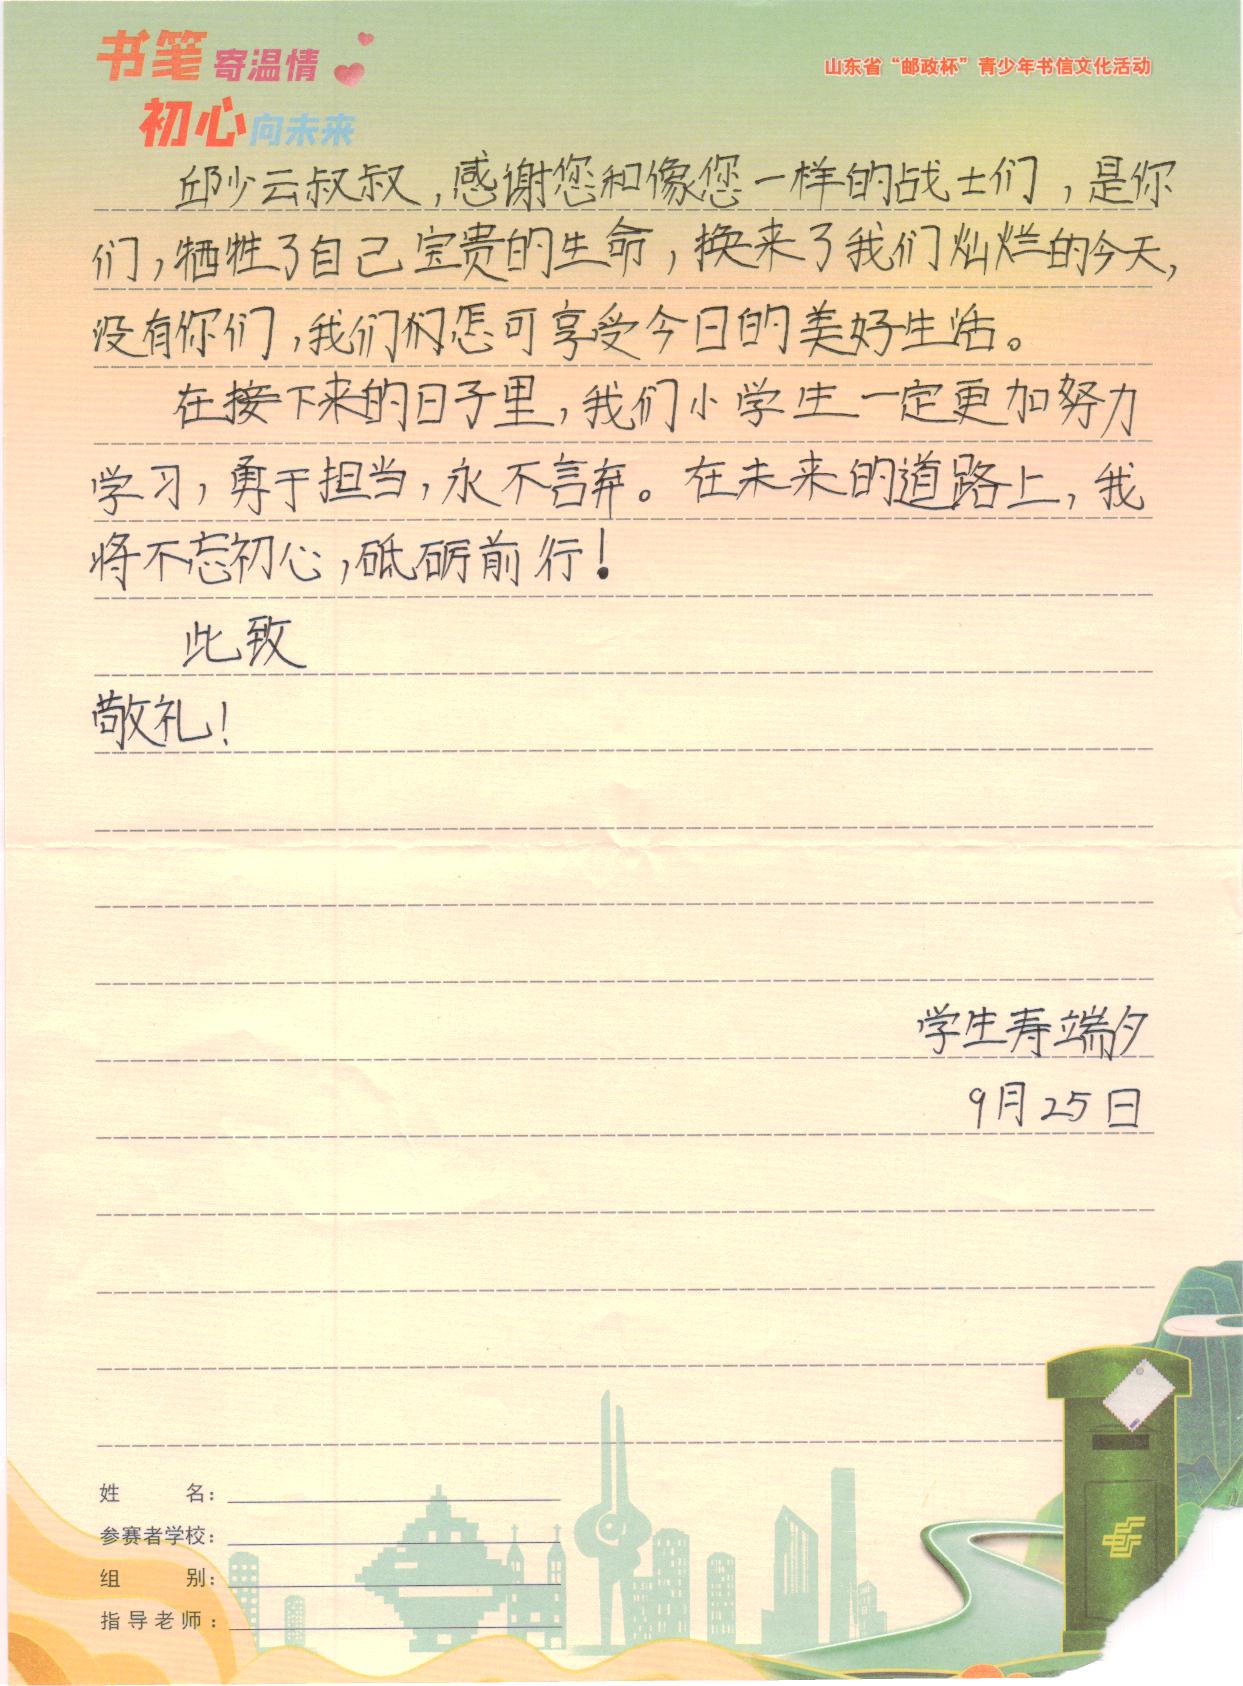 书笔寄温情
初心向未来
山东省“邮政杯”青少年书信文化活动
邱少云叔叔,感谢您和像您一样的战士们,是你
们,牺牲了自己宝贵的生命,换来了我们灿烂的今天,
没有你们,我们们怎可享受今日的美好生活。
在接下来的日子里,我们小学生一定更加努力
学习,勇于担当,永不言弃。在未来的道路上,我
将不忘初心,砥砺前行!
此致
敬礼!
学生寿端夕
9月25日
姓名:
参赛者学校:
组别:
指导老师: